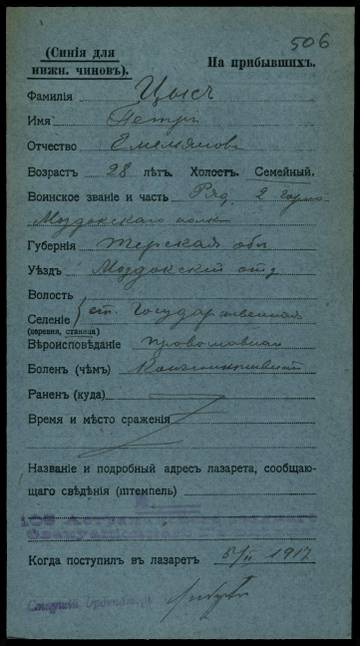 506
(Синія для
нижн. чиновъ).
На прибывшихъ.
Фамилія Цысь
Имя Петръ
Отчество Емельяновъ
Возрастъ 28 лѣтъ. Холостъ. Семейный.
Воинское званіе и часть Ряд. 2 горно
Моздокскаго полка
Губернія Терская обл
Уѣздъ Моздокскій отд
Волость
Селеніе ст. Государственная
(деревня, станица)
Вѣроисповѣданіе православная
Боленъ (чѣмъ) Конъюнктивит
Раненъ (куда)
Время и мѣсто сраженія
Названіе и подробный адресъ лазарета, сообщаю-
щаго свѣдѣнія (штемпель)
Когда поступилъ въ лазаретъ 5/II 1917